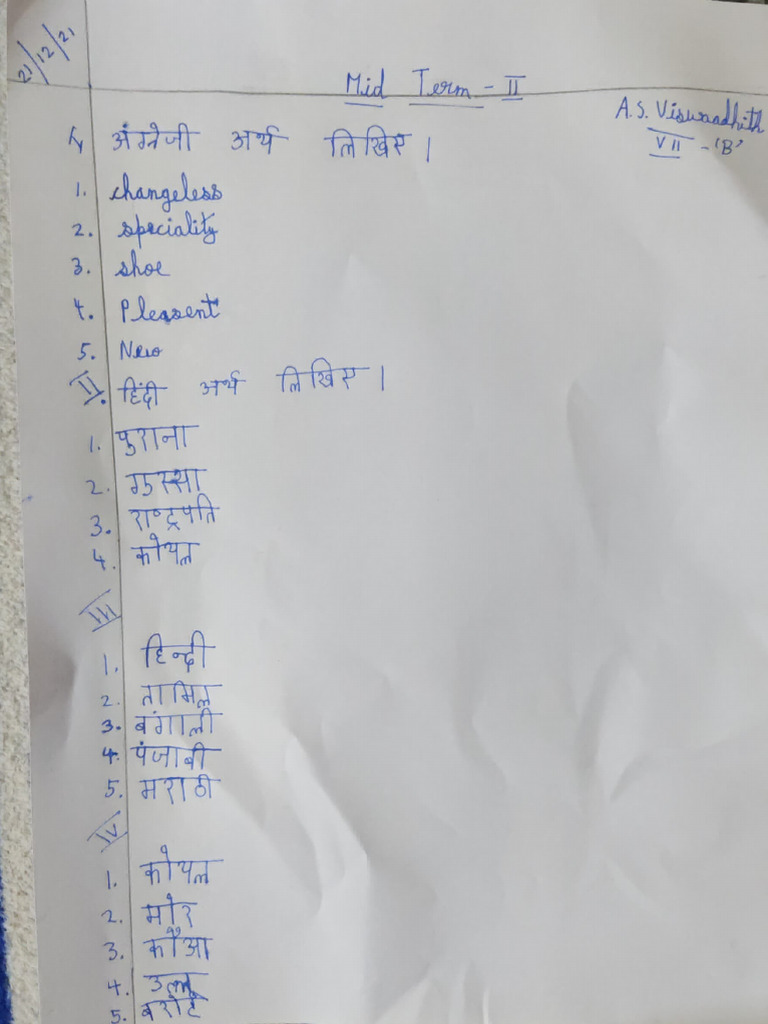 21/12/21
Mid Term - II
A.S. Viswaadhith
VII - 'B'
I, अंग्रेजी अर्थ लिखिए ।
1. changeless
2. speciality
3. shoe
4. Pleasent
5. New
II. हिंदी अर्थ लिखिए ।
1. पुराना
2. गुस्सा
3. राष्ट्रपति
4. कोयल
III
1. हिन्दी
2. तामिल
3. बंगाली
4. पंजाबी
5. मराठी
IV
1. कोयल
2. मोर
3. कौआ
4. उल्लू
5.